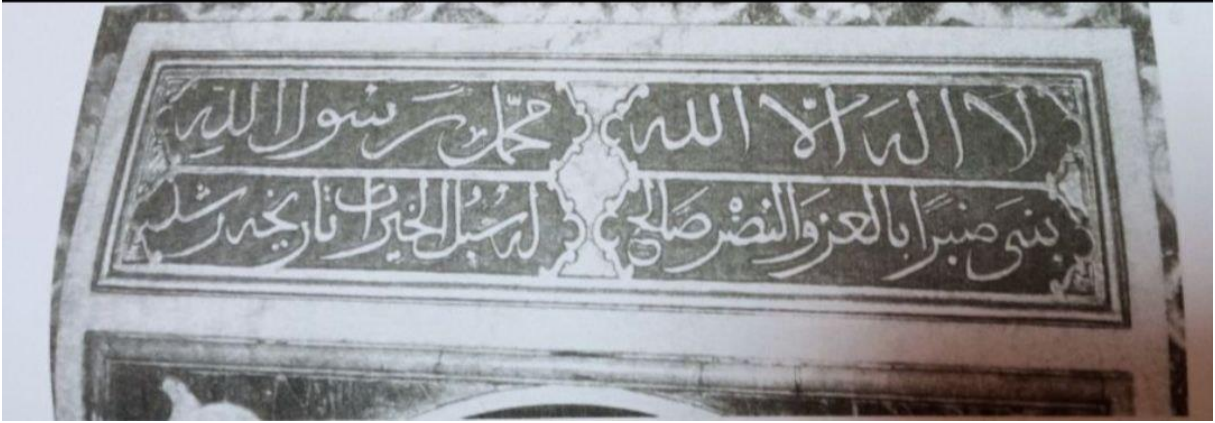 لا اله الّا الله محمّد رسول الله
بنى منبرًا بالعز والنصر صالح له سبل الخيرات تاريخه رشد